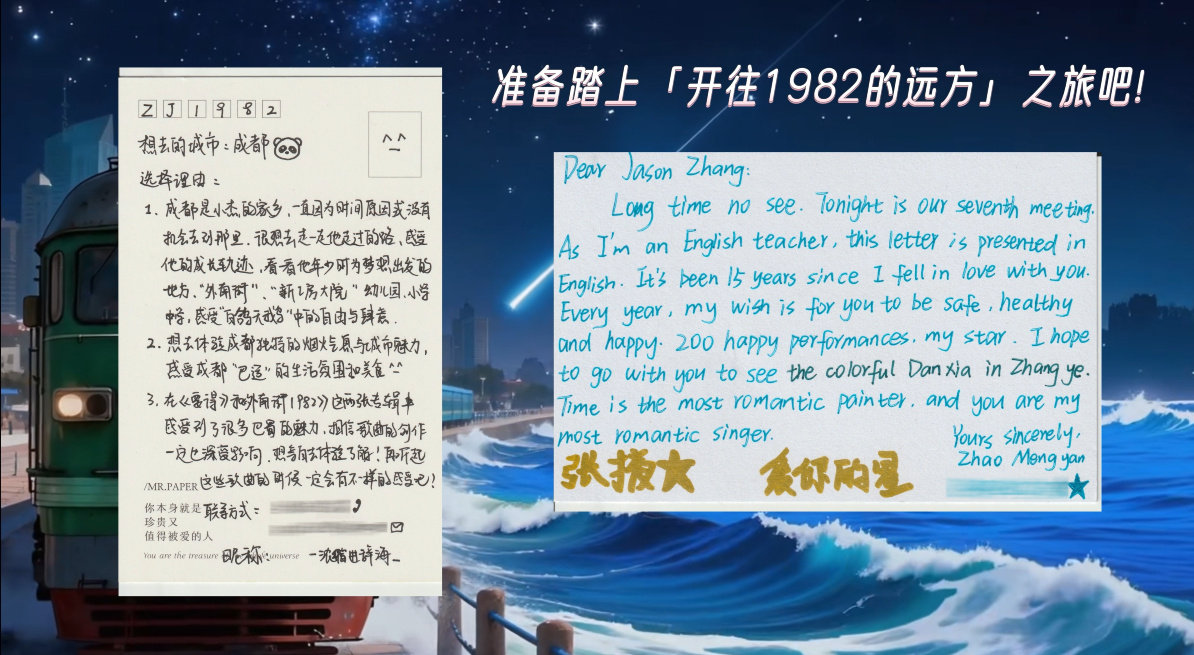 准备踏上「开往1982的远方」之旅吧！
ZJ1982
想去的城市：成都
选择理由：
1. 成都是小杰的家乡，一直因为时间原因或没有
机会去到那里。很想去走一走他走过的路，感受
他的成长轨迹，看一看他年少时为梦想出发的
地方，“外南街”、“新工房大院”幼儿园、小学
中学，感受“白鸽天我当”中的自由与肆意．
2. 想去体验成都独特的烟火气息与城市魅力，
感受成都“巴适”的生活氛围和美食^^
3. 在《要得》和《外南街1982》这两张专辑中
感受到了很多巴蜀的魅力，相信歌曲的创作
一定也深受影响，想亲自去体验了解！再听起
/MR.PAPER 这些歌曲的时候一定会有不一样的感受吧？
你本身就是 联系方式：
珍贵又
值得被爱的人
You are the treasure universe
昵称：
Dear Jason Zhang:
Long time no see. Tonight is our seventh meeting.
As I'm an English teacher, this letter is presented in
English. It's been 15 years since I fell in love with you.
Every year, my wish is for you to be safe, healthy
and happy. 200 happy performances, my star. I hope
to go with you to see the colorful Dan Xia in Zhang ye.
Time is the most romantic painter, and you are my
most romantic singer.
Yours sincerely,
Zhao Meng yan
张掖 爱你的星